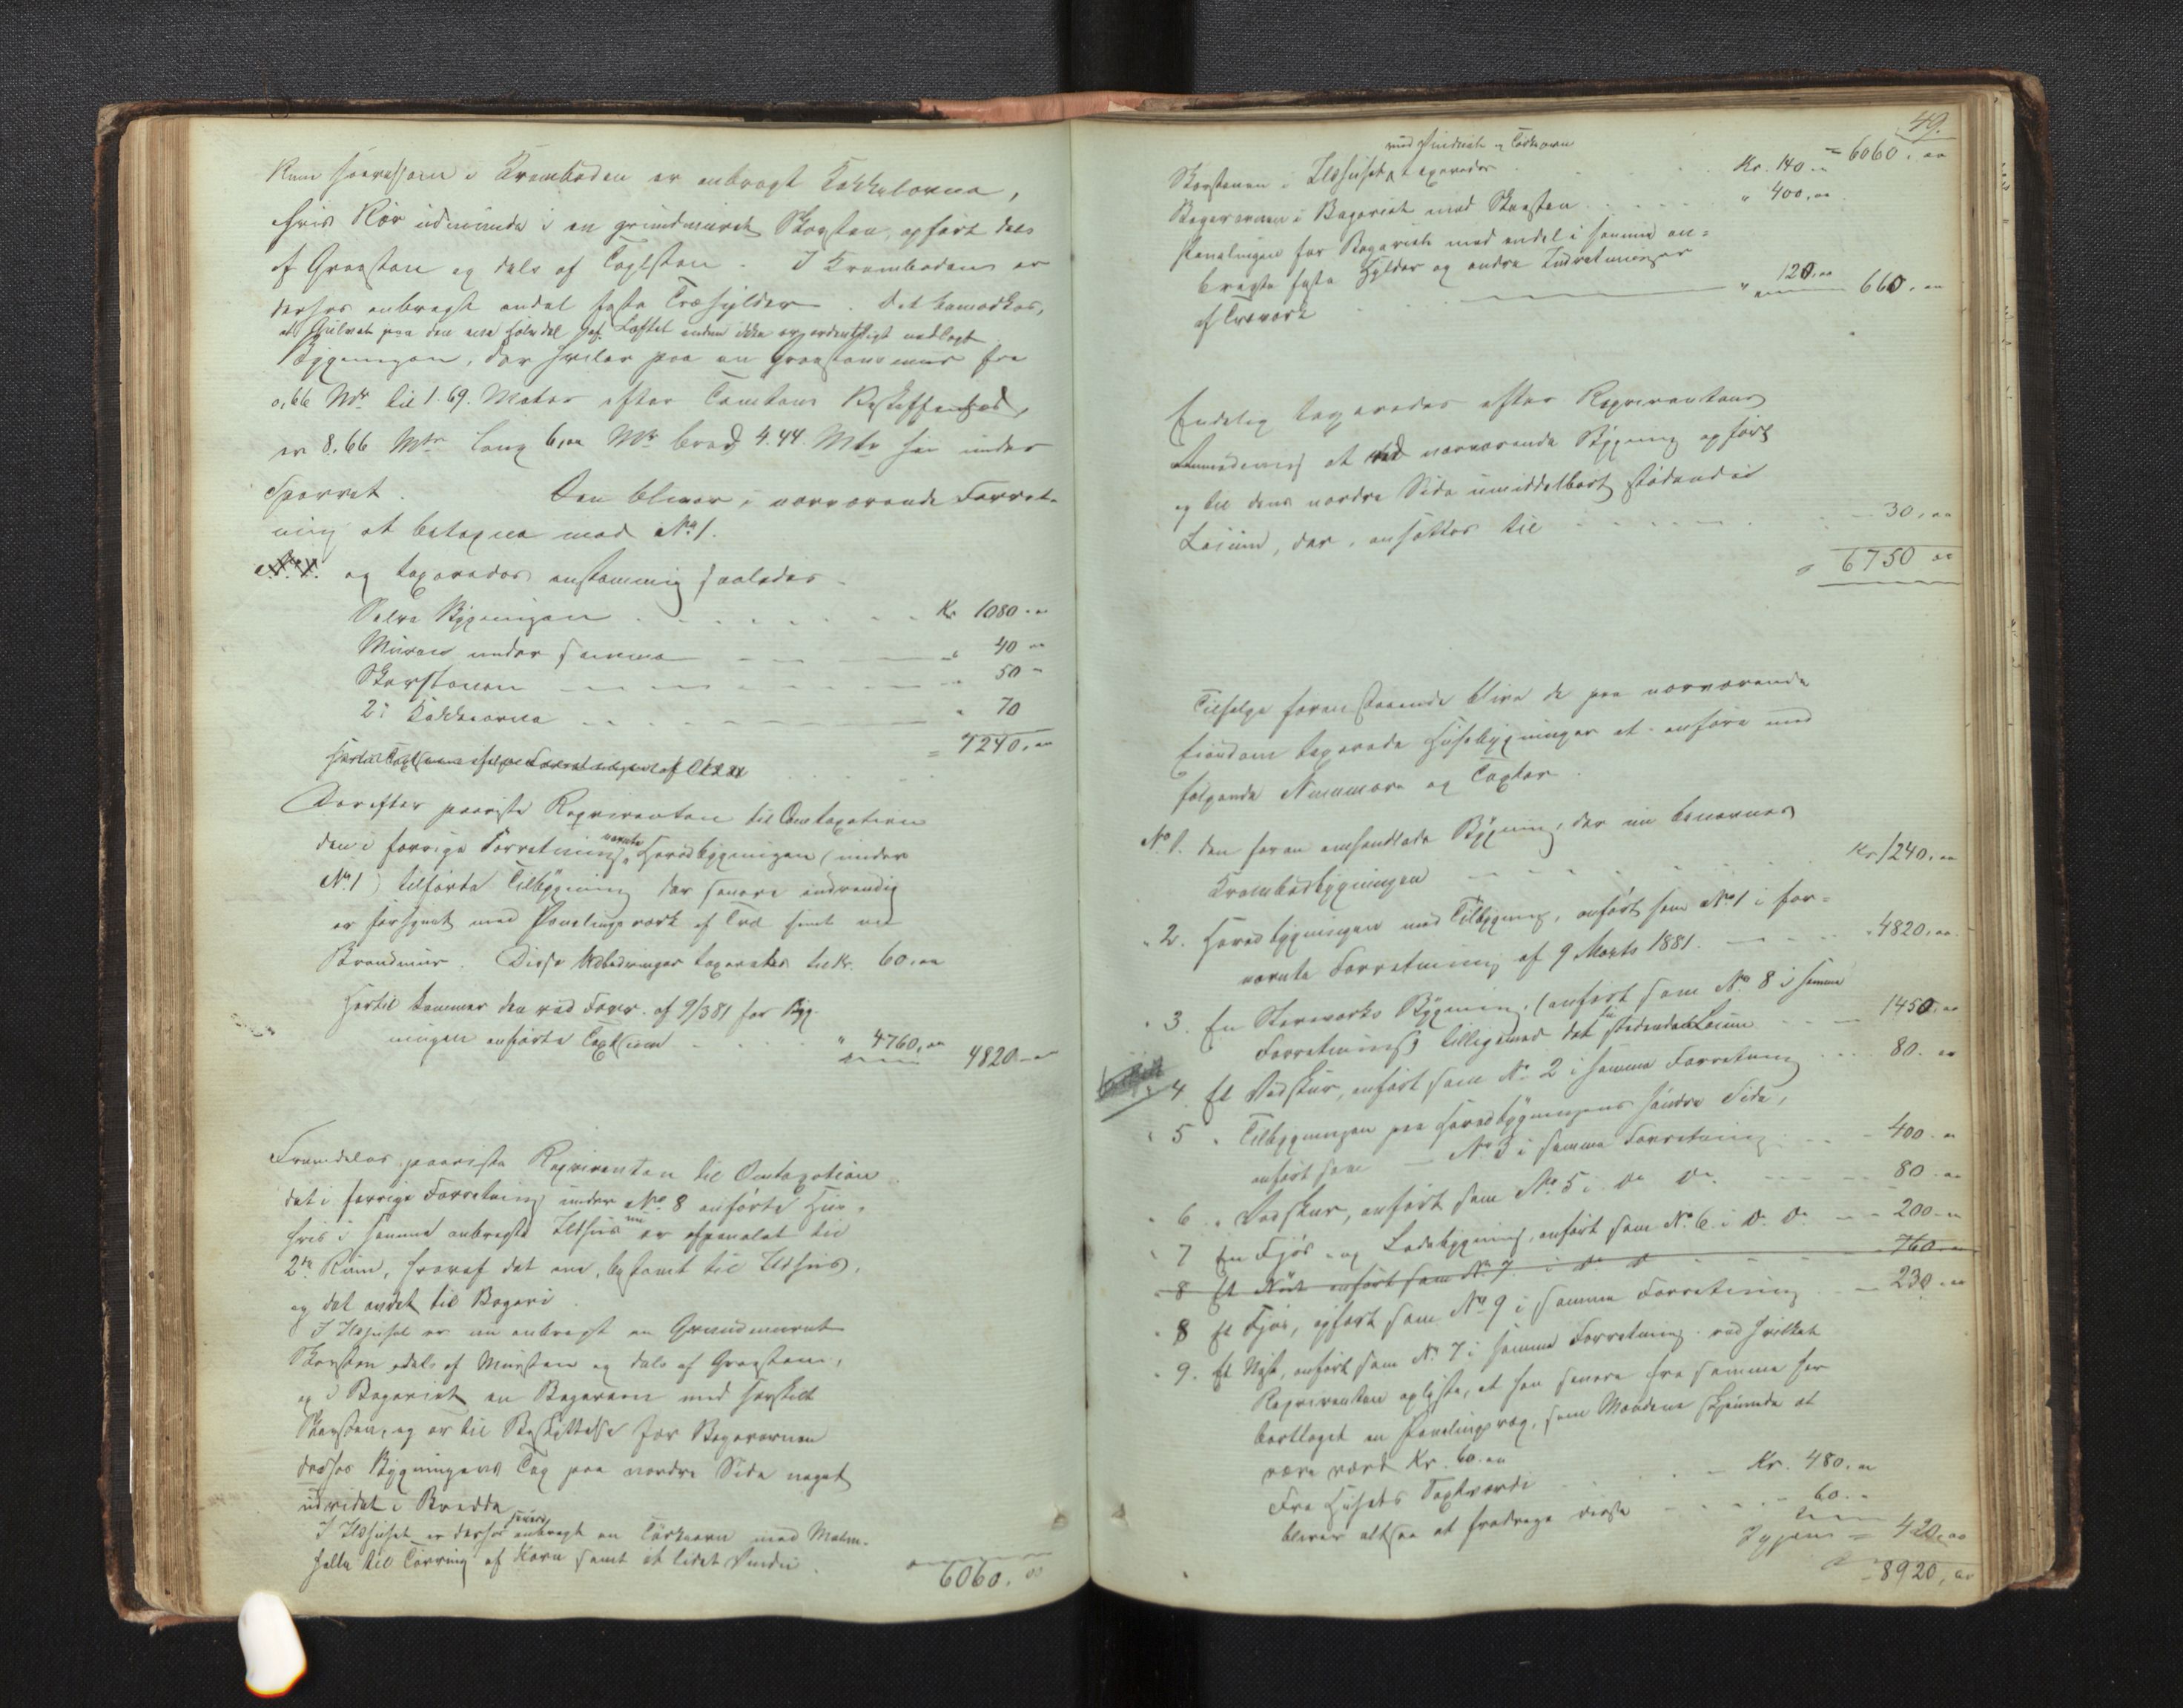 Rum saavelsom i Kramboden er anbragt Kakkelovne,
hvis Rør udmunde i en grundmuret Skorsten, opført dels
af Graasten og dels af Taglsten. I Kramboden er
derhos anbragt endel faste Træhylder. Det bemærkes,
at Gulvet paa den ene halvdel af Loftet endnu ikke er ordentligt nedlagt.
Bygningen, der hviler paa en Graastensmur fra
0,66 Mtr til 1.69. Meter efter Tomtens Beskaffenhed,
er 8.66 Mtr lang 6,00 Mtr bred 4.44. Mtr høi under
Sparret. Den bliver i nærværende Forret-
ning at betegne med No 1.
No 1. og taxeredes enstemmig saaledes.
Selve Bygningen Kr 1080.00
Muren under samme " 40 "
Skorstenen " 50 "
2 Kakkelovne " 70
= 1240,00
Derefter paaviste Rekvirenten til Omtaxation
den i forrige Forretning nævnte Hovedbygningen (under
No 1) tilførte Tilbygning der senere indvendig
er forsynet med Panelingsværk af Træ samt en
Brandmur. Disse Udbedringer taxeredes til Kr. 60,00
Hertil kommer den ved Forr. af 9/3 81 for Byg-
ningen anførte Taxtsum " 4760,00
4820.00
Fremdeles paaviste Rekvirenten til Omtaxation
det i forrige Forretning under No 8 anførte Hus,
hvis i samme anbragte Ildhus nu er afpanelet til
2de Rum, hvoraf det ene, bestemt til Ildhus,
og det andet til Bageri.
I Ildhuset er nu anbragt en Grundmuret
Skorsten dels af Mursten og dels af Graasten,
og i Bageriet en Bagerovn med særskilt
Skorsten, og er til Beskyttelse for Bagerovnen
derhos Bygningens Tag paa nordre Side noget
udvidet i Bredde.
I Ildhuset er derhos senere anbragt en Tørkeovn med Malm-
helle til Tørring af Korn samt et lidet Vindu.
6060.00
49.
= 6060,00
med Vindu og Tørkeovn
Skorstenen i Ildhuset taxeredes Kr. 140.00
Bagerovnen i Bageriet med Skorsten " 400,00
Panelingen for Bageriet med endel i samme an-
bragte faste Hylder og andre Indretninger
af Træværk " 120,00 660,00
Endelig taxeredes efter Rekvirentens
Anmodning et ved nærværende Bygning opført
og til dens nordre Side umiddelbart stødende
Skur, der ansattes til 30,00
6750 00
Tilfølge foranstaaende blive de paa nærværende
Eiendom taxerede Husebygninger at anføre med
følgende Nummere og Taxter.
No 1. den foran omhandlede Bygning, der nu benævnes
Krambodbygningen Kr 1240,00
" 2. Hovedbygningen med Tilbygning, anført som No 1 i for-
nævnte Forretning af 9 Marts 1881. " 4820,00
" 3. En Stenværks Bygning, (anført som No 8 i samme
Forretning) tilligemed det tilstødende Skur 1450,00
" 4 Et Vedskur, anført som No 2 i samme Forretning 80.00
" 5 " Tilbygningen paa Hovedbygningens søndre Side,
anført som No 3 i samme Forretning 400.00
" 6 " Vedskur, anført som No 5 i Do Do. 80.00
" 7 En Fjøs- og Ladebygning, anført som No 6 i Do. Do. 200.00
8 Et Nøst anført som No 7 i Do Do 760.00
" 8 Et Fjøs, opført som No 9 i samme Forretning 230.00
" 9. Et Nøst, anført som No 7 i samme Forretning. ved hvilket
Rekvirenten oplyste, at han senere fra samme har
borttaget en Panelingsvæg, som Mændene skjønnede at
være værd Kr. 60.00
Fra Husets Taxtværdi Kr. 480.00
bliver altsaa at fradrage disse 60..
Igjen = 420,00
8920,00